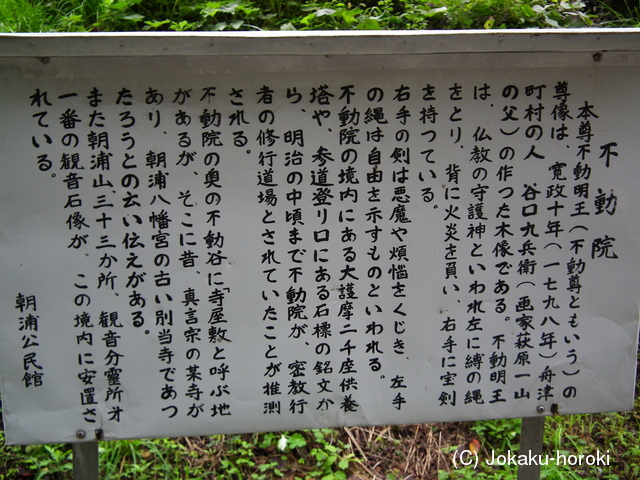 不動院
本尊不動明王(不動尊ともいう)の
尊像は、寛政十年(一七九八年)舟津
町村の人 谷口九兵衛(画家萩原一山
の父)の作った木像である。不動明王
は、仏教の守護神といわれ左に縛の縄
をとり、背に火炎を負い、右手に宝剣
を持っている。
右手の剣は悪魔や煩悩をくじき、左手
の縄は自由を示すものといわれる。
不動院の境内にある大護摩二千座供養
塔や、参道登り口にある石標の銘文か
ら、明治の中頃まで不動院が、密教行
者の修行道場とされていたことが推測
される。
不動院の奥の不動谷に「寺屋敷と呼ぶ地
があるが、そこに昔、真言宗の某寺が
あり、朝浦八幡宮の古い別当寺であっ
たろうとの云い伝えがある。
また朝浦山三十三か所、観音分霊所オ
一番の観音石像が、この境内に安置さ
れている。
朝浦公民館
(C) Jokaku-horoki